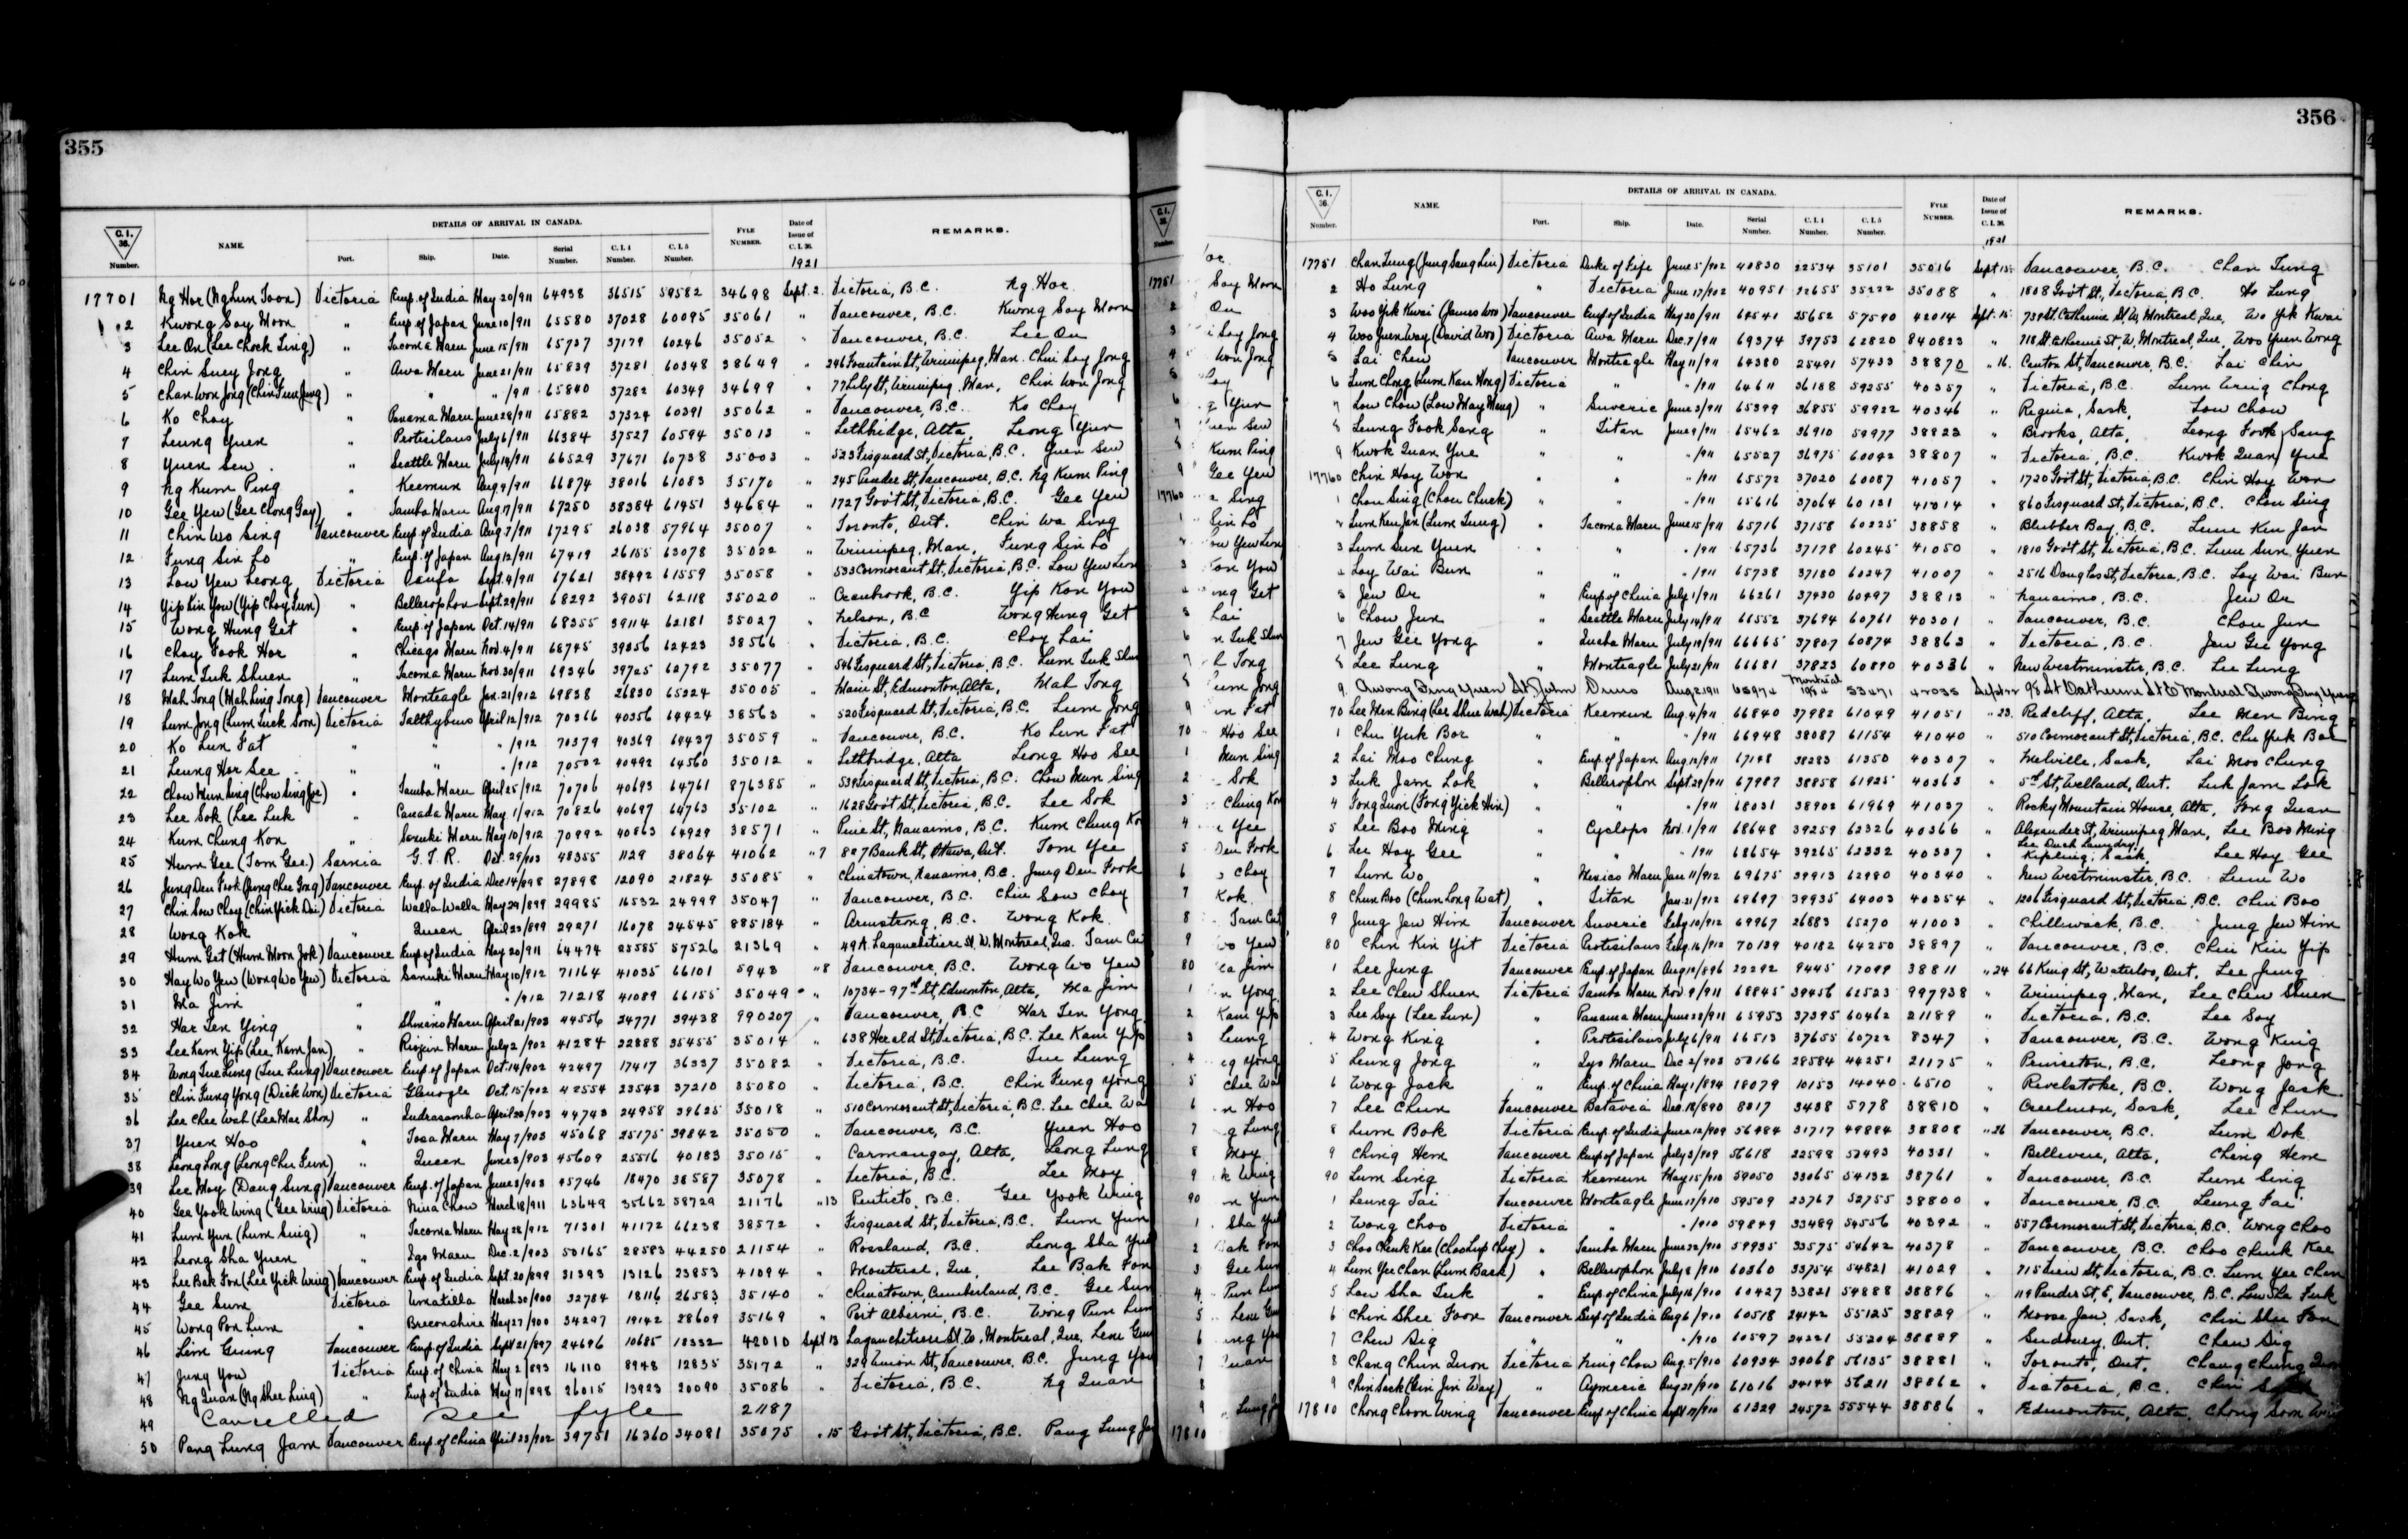 355
C.I. 36. Number.
NAME.
DETAILS OF ARRIVAL IN CANADA.
Port. Ship. Date. Serial Number. C.I.4 Number. C.I.5 Number.
FYLE NUMBER.
Date of Issue of C.I.36.
1921
REMARKS.
17701 Ng Hor (Ng Lun Toon) Victoria Emp. of India May 20/911 64938 36515 59582 34698 Sept. 2. Victoria, B.C. Ng Hor
2 Kwong Soy Moon " Emp of Japan June 10/911 65580 37028 60095 35061 " Vancouver, B.C. Kwong Soy Moon
3 Lee On (Lee Chock Ling) " Tacoma Maru June 15/911 65737 37179 60246 35052 " Vancouver, B.C. Lee On
4 Chin Suey Jong " Awa Maru June 21/911 65839 37281 60348 38649 " 246 Fountain St, Winnipeg, Man. Chin Soy Jong
5 Chan Won Jong " " " /911 65840 37282 60349 34699 " 77 Lily St, Winnipeg, Man, Chin Won Jong
6 Ko Choy " Panama Maru June 28/911 65882 37324 60391 35062 " Vancouver, B.C. Ko Choy
7 Leung Yuen " Protesilaus July 6/911 66384 37527 60594 35013 " Lethbridge, Alta. Leong Yun
8 Yuen Sew " Seattle Maru July 14/911 66529 37671 60738 35003 " 523 Fisguard St, Victoria, B.C. Yuen Sew
9 Ng Kum Ping " Keemun Aug. 4/911 66874 38016 61083 35170 " 245 Pender St, Vancouver, B.C. Ng Kum Ping
10 Gee Yew (Gee Chong Gay) " Tamba Maru Aug 17/911 67250 38384 61451 34684 " 1727 Gov't St, Victoria, B.C. Gee Yew
11 Chin Wo Sing Vancouver Emp of India Aug 7/911 67295 26038 57964 35007 " Toronto, Ont. Chin Wa Sing
12 Fung Sin Lo " Emp. of Japan Aug 12/911 67419 26155 63078 35022 " Winnipeg, Man, Fung Sin Lo
13 Low Yew Leong Victoria Oanfa Sept. 4/911 67621 38492 61559 35058 " 533 Cormorant St, Victoria, B.C. Low Yew Leon
14 Yip Kin You (Yip Choy Fun) " Bellerophon Sept. 29/911 68292 39051 62118 35020 " Cranbrook, B.C. Yip Kon You
15 Wong Hung Get " Emp. of Japan Oct. 14/911 68355 39114 62181 35027 " Nelson, B.C. Wong Hung Get
16 Choy Fook Hor " Chicago Maru Nov. 4/911 68745 39356 62423 38566 " Victoria, B.C. Choy Lai
17 Lum Tuk Shuen " Tacoma Maru Nov. 30/911 69346 39725 62792 35077 " 546 Fisguard St, Victoria, B.C. Lum Tuk Shu
18 Mah Tong (Mah Ling Tong) Vancouver Monteagle Jan. 21/912 69838 26830 65224 35005 " Main St, Edmonton, Alta, Mah Tong
19 Lum Jong (Lum Tuck Soon) Victoria Talthybius April 12/912 70366 40356 64424 38563 " 520 Fisguard St, Victoria, B.C. Lum Jong
20 Ko Lun Fat " " " /912 70379 40369 64437 35059 " Vancouver, B.C. Ko Lun Fat
21 Leung Hor See " " " /912 70502 40492 64560 35012 " Lethbridge, Alta Leong Hoo See
22 Chow Mun Sing " Tamba Maru April 25/912 70706 40693 64761 876385 " 534 Fisguard St, Victoria, B.C. Chow Mun Sing
23 Lee Sok (Lee Luk " Canada Maru May 1/912 70826 40697 64763 35102 " 1628 Gov't St, Victoria, B.C. Lee Sok
24 Kum Chung Kon Sanuki Maru May 10/912 70992 40863 64929 38571 " Pine St, Nanaimo, B.C. Kum Chung Ko
25 Hum Gee (Tom Gee) Sarnia G.T.R. Oct. 29/903 48355 1129 38064 41062 " 7 827 Bank St, Ottawa, Ont. Tom Yee
26 Jung Den Fook (Jung Chee Gong) Vancouver Emp. of India Dec 14/898 27898 12090 21824 35085 " Chinatown, Nanaimo, B.C. Jung Den Fook
27 Chin Sow Choy (Chin Yick Dai) Victoria Walla Walla May 29/899 29985 16532 24999 35047 " Vancouver, B.C. Chin Sow Choy
28 Wong Kok " Queen April 23/899 29271 16078 24545 885184 " Armstrong, B.C. Wong Kok
29 Hum Get (Hum Moon Jok) Vancouver Emp of India May 20/911 64474 25585 57526 21369 " 49A. Lagauchetiere St. W. Montreal, Que.
30 Hay Wo Yew (Wong Wo Yew) Victoria Sanuki Maru May 10/912 71164 41035 66101 5943 " 8 Vancouver, B.C. Wong Wo Yew
31 Ma Jim " " " /912 71218 41089 66155 35049 " 10734-97th St, Edmonton, Alta, Ma Jim
32 Har Ten Ying " Shinano Maru April 21/903 44556 24771 39438 990207 " Vancouver, B.C. Har Ten Yong
33 Lee Kam Yip (Lee Kam Jan) " Riojun Maru July 2/902 41284 22888 35455 35014 " 638 Herald St, Victoria, B.C. Lee Kam Yip
34 Wong Tue Lung (Tue Lung) Vancouver Emp. of Japan Oct. 14/902 42497 17417 36337 35082 " Victoria, B.C. Tue Leung
35 Chin Fung Yong (Dick Won) Victoria Glenogle Oct. 15/902 42554 23543 37210 35080 " Victoria, B.C. Chin Fung Yong
36 Lee Chee Wah (Lee Mae Shon) " Indrasamha April 20/903 44743 24958 39625 35018 " 510 Cormorant St, Victoria B.C. Lee Chee Wa
37 Yuen Hoo " Tosa Maru May 7/903 45068 25175 39842 35050 " Vancouver, B.C. Yuen Hoo
38 Leong Long (Leong Chu Fun) " Queen June 3/903 45609 25516 40183 35015 " Carmangay, Alta, Leong Lung
39 Lee Moy (Dang Sung) Vancouver Emp. of Japan June 8/903 45746 18470 38587 35078 " Victoria, B.C. Lee Moy
40 Gee Yook Wing (Gee Wing) Victoria Ning Chow March 18/911 63649 35662 58729 21176 " 13 Penticto, B.C. Gee Yook Wing
41 Lum Yun (Lum Sing) " Tacoma Maru May 28/912 71301 41172 66238 38572 " Fisguard St, Victoria, B.C. Lum Yun
42 Leong Sha Yuen " Iyo Maru Dec. 2/903 50165 28583 44250 21154 " Rossland, B.C. Leong Sha Yu
43 Lee Bak Fon (Lee Yick Wing) Vancouver Emp. of India Sept. 20/899 31393 13126 23853 41094 " Montreal, Que, Lee Bak Fon
44 Gee Sum Victoria Umatilla March 30/900 32784 18116 26583 35140 " Chinatown, Cumberland, B.C. Gee Sum
45 Wong Pon Lum " Breconshire May 27/900 34297 19142 28609 35169 " Port Alberni, B.C. Wong Pun Lum
46 Lim Gung Vancouver Emp. of India Sept 21/897 24696 10685 18332 42010 Sept 13 Lagauchetiere St. W. Montreal, Que,
47 Jung You Victoria Emp. of China May 2/893 16110 8948 12835 35172 " 329 Union St, Vancouver, B.C. Jung You
48 Ng Quan (Ng Shee Ling) " Emp of India May 17/898 26015 13923 20090 35086 " Victoria, B.C. Ng Quan
49 Cancelled See fyle 21187
50 Pang Lung Jam Vancouver Emp of China April 23/902 39751 16360 34081 35075 " 15 Gov't St, Victoria, B.C. Pang Lung Ja
356
C.I. 36. Number.
NAME.
DETAILS OF ARRIVAL IN CANADA.
Port. Ship. Date. Serial Number. C.I.4 Number. C.I.5 Number.
FYLE NUMBER.
Date of Issue of C.I.36.
1921
REMARKS.
17751 Chan Tung (Jung Sang Lin) Victoria Duke of Fife June 5/902 40830 22534 35101 35016 Sept 15. Vancouver, B.C. Chan Tung
2 Ho Lung " Victoria June 17/902 40951 22655 35222 35088 " 1808 Gov't St, Victoria, B.C. Ho Lung
3 Woo Yok Kwai (James Woo) Vancouver Emp of India May 20/911 64541 25652 57590 42014 Sept. 15. 739 St. Catherine St. W, Montreal, Que, Wo Yok Kwai
4 Woo Yuen Way (David Woo) Victoria Awa Maru Dec. 7/911 69374 39753 62820 840823 " 718 St. Catherine St, W, Montreal, Que, Woo Yuen Wong
5 Lai Chew Vancouver Monteagle May 11/911 64380 25491 57433 38870 " 16. Canton St, Vancouver, B.C. Lai Chin
6 Lum Chong (Lum Kan Hong) Victoria " " /911 64611 36188 59255 40357 " Victoria, B.C. Lum Wing Chong
7 Low Chow (Low May Ming) " Suveric June 3/911 65399 36855 59922 40346 " Regina, Sask, Low Chow
8 Leung Fook Sang " Titan June 9/911 65462 36910 59977 38823 " Brooks, Alta, Leong Fook Sang
9 Kwok Quan Yue " " " /911 65527 36975 60042 38807 " Victoria, B.C. Kwok Quan Yue
17760 Chin Hoy Won " " /911 65572 37020 60087 41057 " 1720 Gov't St, Victoria, B.C. Chin Hoy Won
1 Chou Sing (Chou Chuck) " " /911 65616 37064 60131 41014 " 860 Fisguard St, Victoria, B.C. Chou Sing
2 Lum Ken Jan (Lum Tung) " Tacoma Maru June 15/911 65716 37158 60225 38858 " Blubber Bay, B.C. Lum Ken Jan
3 Lum Sun Yuen " " " /911 65736 37178 60245 41050 " 1810 Gov't St, Victoria, B.C. Lum Sun Yuen
4 Loy Wai Bun " " " /911 65738 37180 60247 41007 " 2516 Douglas St, Victoria, B.C. Loy Wai Bun
5 Jew On " Emp of China July 1/911 66261 37430 60497 38813 " Nanaimo, B.C. Jew On
6 Chow Jun " Seattle Maru July 14/911 66552 37694 60761 40301 " Vancouver, B.C. Chow Jun
7 Jew Gee Yong " Inaba Maru July 19/911 66665 37807 60874 38863 " Victoria, B.C. Jew Gee Yong
8 Lee Lung " Monteagle July 21/911 66681 37823 60890 40336 " New Westminster, B.C. Lee Lung
9 St. John Aug 2/911 Montreal 53471 Sept 22 98 St Catherine St E Montreal
70 Lee Men Bing (Lee Shue Wah) Victoria Keemun Aug. 4/911 66840 37982 61049 41051 " 23. Redcliff, Alta, Lee Men Bing
1 Chu Yuk Bor " " " /911 66948 38087 61154 41040 " 510 Cormorant St, Victoria, B.C. Chu Yuk Bor
2 Lai Moo Chung " Emp. of Japan Aug. 12/911 67148 38283 61350 40307 " Melville, Sask, Lai Moo Chung
3 Luk Jam Lok " Bellerophon Sept. 29/911 67987 38858 61925 40363 " 5th St, Welland, Ont. Luk Jam Lok
4 Fong Quon (Fong Yick Hin) " " " /911 68031 38902 61969 41037 " Rocky Mountain House, Alta, Fong Quan
5 Lee Boo Ming " Cyclops Nov. 1/911 68648 39259 62326 40366 " Alexander St, Winnipeg, Man, Lee Boo Ming
6 Lee Hoy Gee " " " /911 68654 39265 62332 40337 " Laundry, Kipling, Sask, Lee Hoy Gee
7 Lum Wo " Mexico Maru Jan 11/912 69675 39913 62980 40340 " New Westminster, B.C. Lum Wo
8 Chun Boo (Chun Long Wat) " Titan Jan. 21/912 69697 39935 64003 40354 " 1206 Fisguard St, Victoria, B.C. Chin Boo
9 Jung Jew Him Vancouver Suveric Feb'y 10/912 69967 26883 65270 41003 " Chilliwack, B.C. Jung Jew Him
80 Chin Kin Yit Victoria Protesilaus Feb'y 16/912 70139 40182 64250 38897 " Vancouver, B.C. Chin Kin Yip
1 Lee Jung Vancouver Emp. of Japan Aug 18/896 22292 9445 17099 38811 " 24 66 King St, Waterloo, Ont, Lee Jung
2 Lee Chew Shuen Victoria Tamba Maru Nov 9/911 68845 39456 62523 997938 " Winnipeg, Man, Lee Chew Shuen
3 Lee Soy (Lee Lun) " Panama Maru June 28/911 65953 37395 60462 21189 " Victoria, B.C. Lee Soy
4 Wong King " Protesilaus July 6/911 66513 37655 60722 8347 " Vancouver, B.C. Wong King
5 Leung Jong " Iyo Maru Dec 2/903 50166 28584 44251 21175 " Princeton, B.C. Leong Jong
6 Wong Jack " Emp. of China May 1/894 18079 10153 14040 6510 " Revelstoke, B.C. Wong Jack
7 Lee Chun Vancouver Batavia Dec. 18/890 8017 3438 5778 38810 " Creelman, Sask, Lee Chun
8 Lum Bok Victoria Emp. of India June 12/909 56484 31717 49884 38808 " 26 Vancouver, B.C. Lum Dok
9 Ching Hem Vancouver Emp of Japan July 3/909 56618 22598 52493 40331 " Bellevue, Alta, Ching Hem
90 Lum Sing Victoria Keemun May 15/910 59050 33065 54132 38761 " Vancouver, B.C. Lum Sing
1 Leung Tai Vancouver Monteagle June 17/910 59509 23767 52755 38800 " Vancouver, B.C. Leung Tai
2 Wong Choo Victoria " " /910 59849 33489 54556 40392 " 557 Cormorant St, Victoria, B.C. Wong Choo
3 Choo Chuk Kee (Choo Lup Choy) " Tamba Maru June 22/910 59935 33575 54642 40378 " Vancouver, B.C. Choo Chuk Kee
4 Lum Yee Chan (Lum Back) " Bellerophon July 8/910 60360 33754 54821 41029 " 715 View St, Victoria, B.C. Lum Yee Chan
5 Low Sha Tuk " Emp of China July 16/910 60427 33821 54888 38896 " 119 Pender St, E, Vancouver, B.C. Low Sha Tuk
6 Chin Shee Foon Vancouver Emp of India Aug 6/910 60518 24142 55125 38829 " Moose Jaw, Sask, Chin Shee Fon
7 Chew Sig " " " /910 60597 24221 55204 38889 " Sudbury, Ont. Chew Sig
8 Chang Chun Quon Victoria Ning Chow Aug. 5/910 60934 34068 56135 38881 " Toronto, Ont. Chang Chung Quon
9 Chin Sack (Gin Jin Way) " Aymeric Aug 21/910 61016 34144 56211 38862 " Victoria, B.C. Chin Sack
17810 Chong Choon Wing Vancouver Emp of China Sept 17/910 61329 24572 55544 38586 " Edmonton, Alta, Chong Soon Win